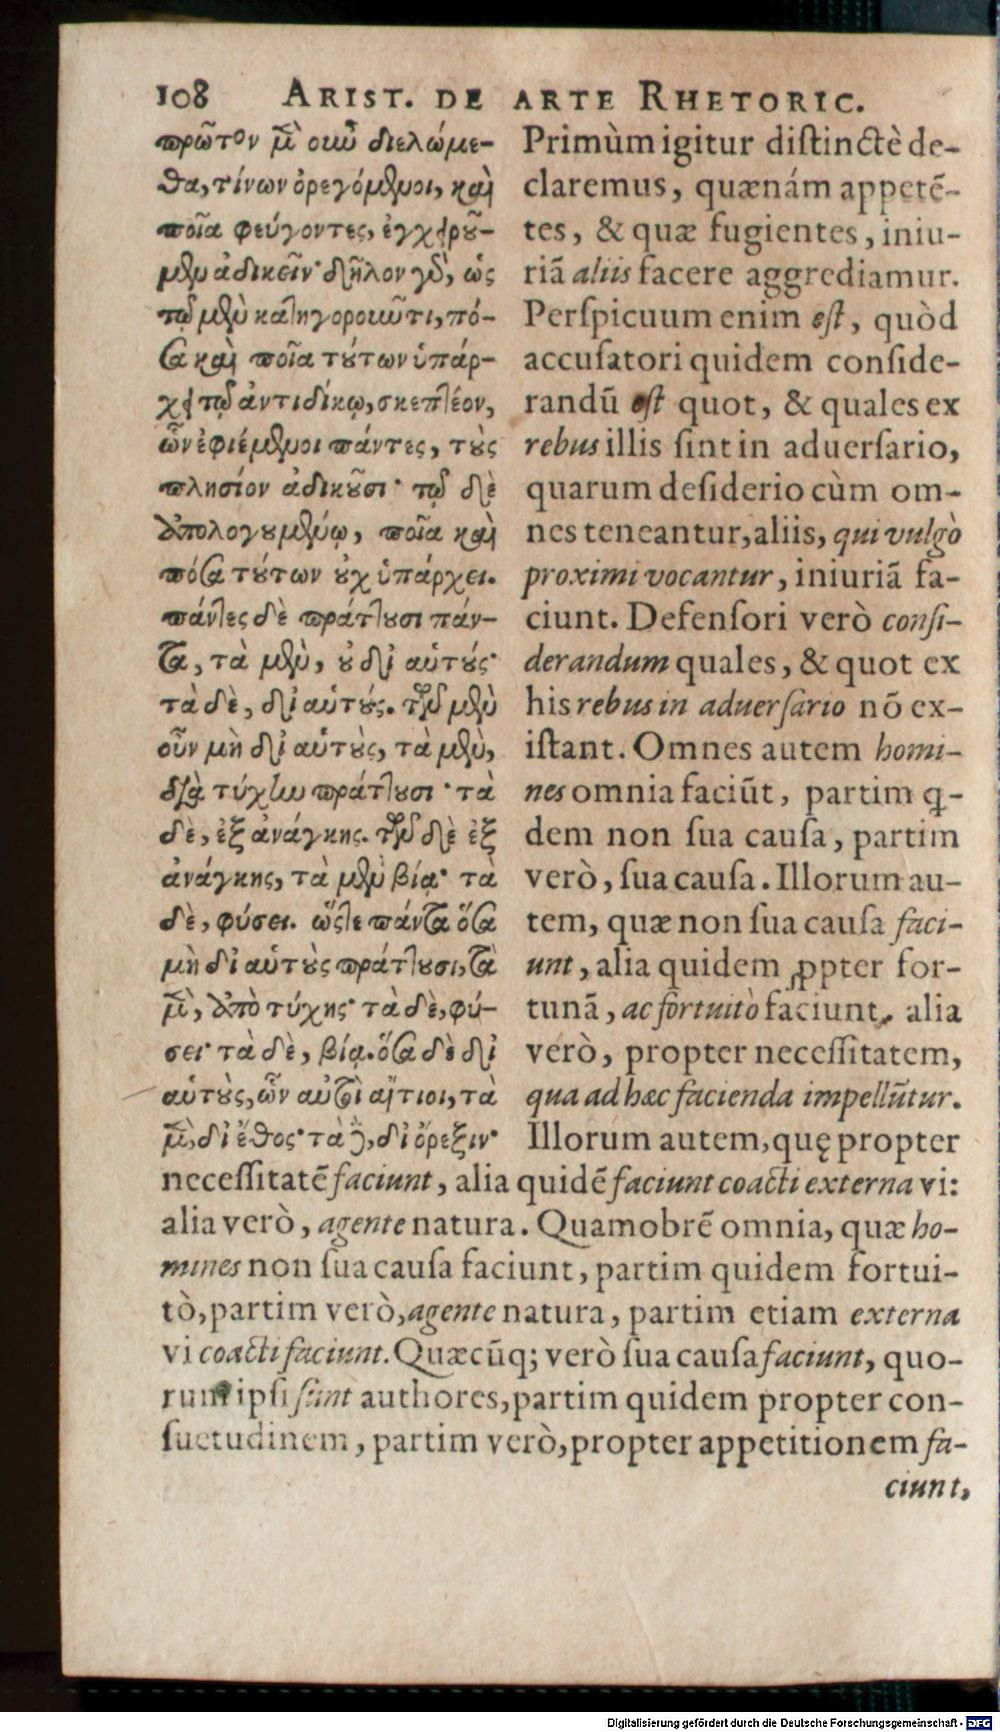 108 ARIST. DE ARTE RHETORIC.
πρῶτον μ̃ οὖν διελώμε-
θα, τίνων ὀρεγόμενοι, καὶ
ποῖα φεύγοντες, ἐγχειροῦ-
μεν ἀδικεῖν· δῆλον γδ̀, ὡς
τῷ μὲν κατηγοροιῶτι, πό-
σα καὶ ποῖα τούτων ὑπάρ-
χει τῷ ἀντιδίκῳ, σκεπτέον,
ὧν ἐφιέμενοι πάντες, τοὺς
πλησίον ἀδικοῦσι· τῷ δὲ
ἀπολογουμένῳ, ποῖα καὶ
πόσα τούτων οὐχ ὑπάρχει.
πάντες δὲ πράττουσι πάν-
τα, τὰ μὲν, οὐ δι αὑτούς·
τὰ δὲ, δι αὑτούς. τῶν μὲν
οὖν μὴ δι αὑτοὺς, τὰ μὲν,
διὰ τύχην πράττουσι· τὰ
δὲ, ἐξ ἀνάγκης. τῶν δὲ ἐξ
ἀνάγκης, τὰ μὲν βίᾳ· τὰ
δὲ, φύσει. ὥστε πάντα ὅσα
μὴ δι αὑτοὺς πράττουσι, τὰ
μ̃, ἀπὸ τύχης· τὰ δὲ, φύ-
σει· τὰ δὲ, βίᾳ. ὅσα δὲ δι
αὑτοὺς, ὧν αὐτοὶ αἴτιοι, τὰ
μ̃, δι ἔθος· τὰ ȷ̀, δι ὄρεξιν·
Primùm igitur distinctè de-
claremus, quænám appetē-
tes, & quæ fugientes, iniu-
riā aliis facere aggrediamur.
Perspicuum enim est, quòd
accusatori quidem conside-
randū est quot, & quales ex
rebus illis sint in aduersario,
quarum desiderio cùm om-
nes teneantur, aliis, qui vulgò
proximi vocantur, iniuriā fa-
ciunt. Defensori verò consi-
derandum quales, & quot ex
his rebus in aduersario nō ex-
istant. Omnes autem homi-
nes omnia faciūt, partim q̣-
dem non sua causa, partim
verò, sua causa. Illorum au-
tem, quæ non sua causa faci-
unt, alia quidem ꝓpter for-
tunā, ac fortuitò faciunt, alia
verò, propter necessitatem,
qua ad hæc facienda impellūtur.
Illorum autem, quę propter
necessitatē faciunt, alia quidē faciunt coacti externa vi:
alia verò, agente natura. Quamobrē omnia, quæ ho-
mines non sua causa faciunt, partim quidem fortui-
tò, partim verò, agente natura, partim etiam externa
vi coacti faciunt. Quæcūq; verò sua causa faciunt, quo-
rum ipsi sunt authores, partim quidem propter con-
suetudinem, partim verò, propter appetitionem fa-
ciunt,
Digitalisierung gefördert durch die Deutsche Forschungsgemeinschaft - DFG